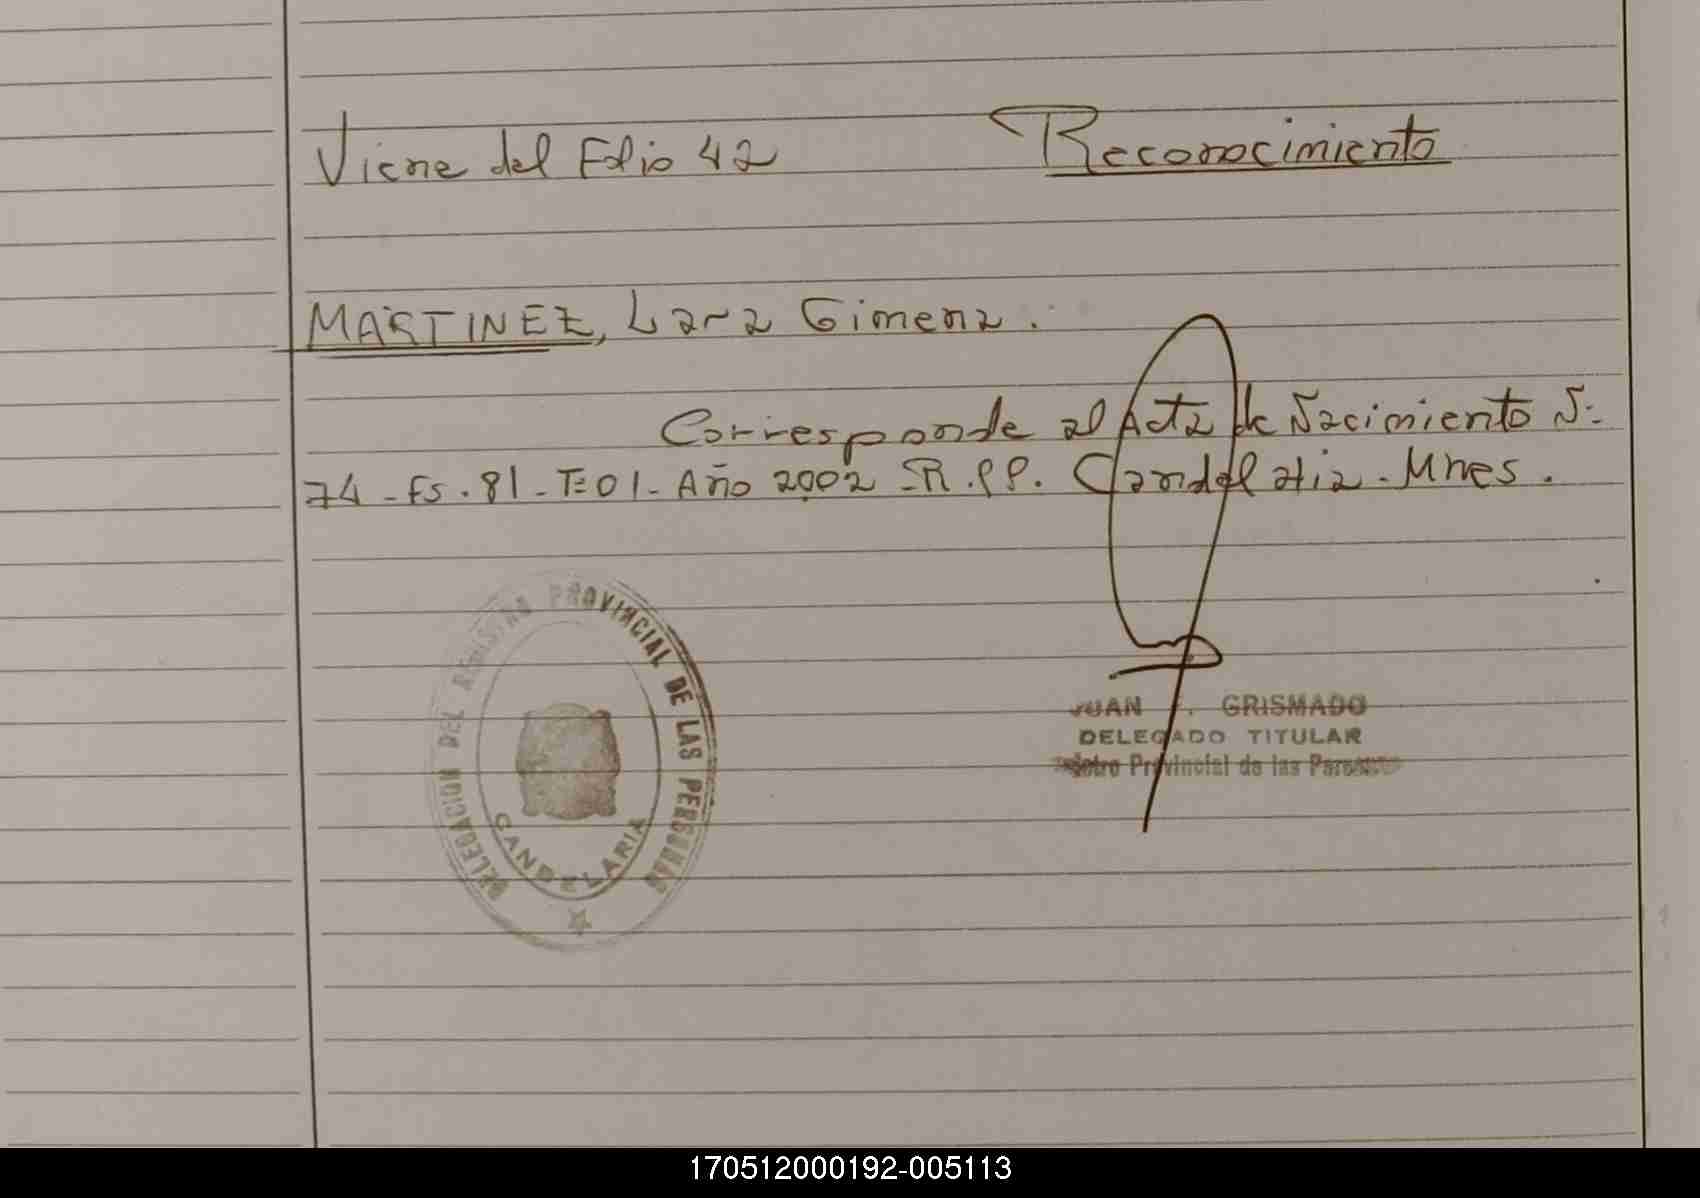 Viene del Folio 42 Reconocimiento
MARTINEZ, Lara Gimena.
Corresponde al Acta de Nacimiento Nº
74 - Fs. 81 - Tº 01 - Año 2002 - R.P.P. Candelaria - Mnes.
DELEGACION DEL REGISTRO PROVINCIAL DE LAS PERSONAS
CANDELARIA
JUAN . GRISMADO
DELEGADO TITULAR
Provincial de las
170512000192-005113